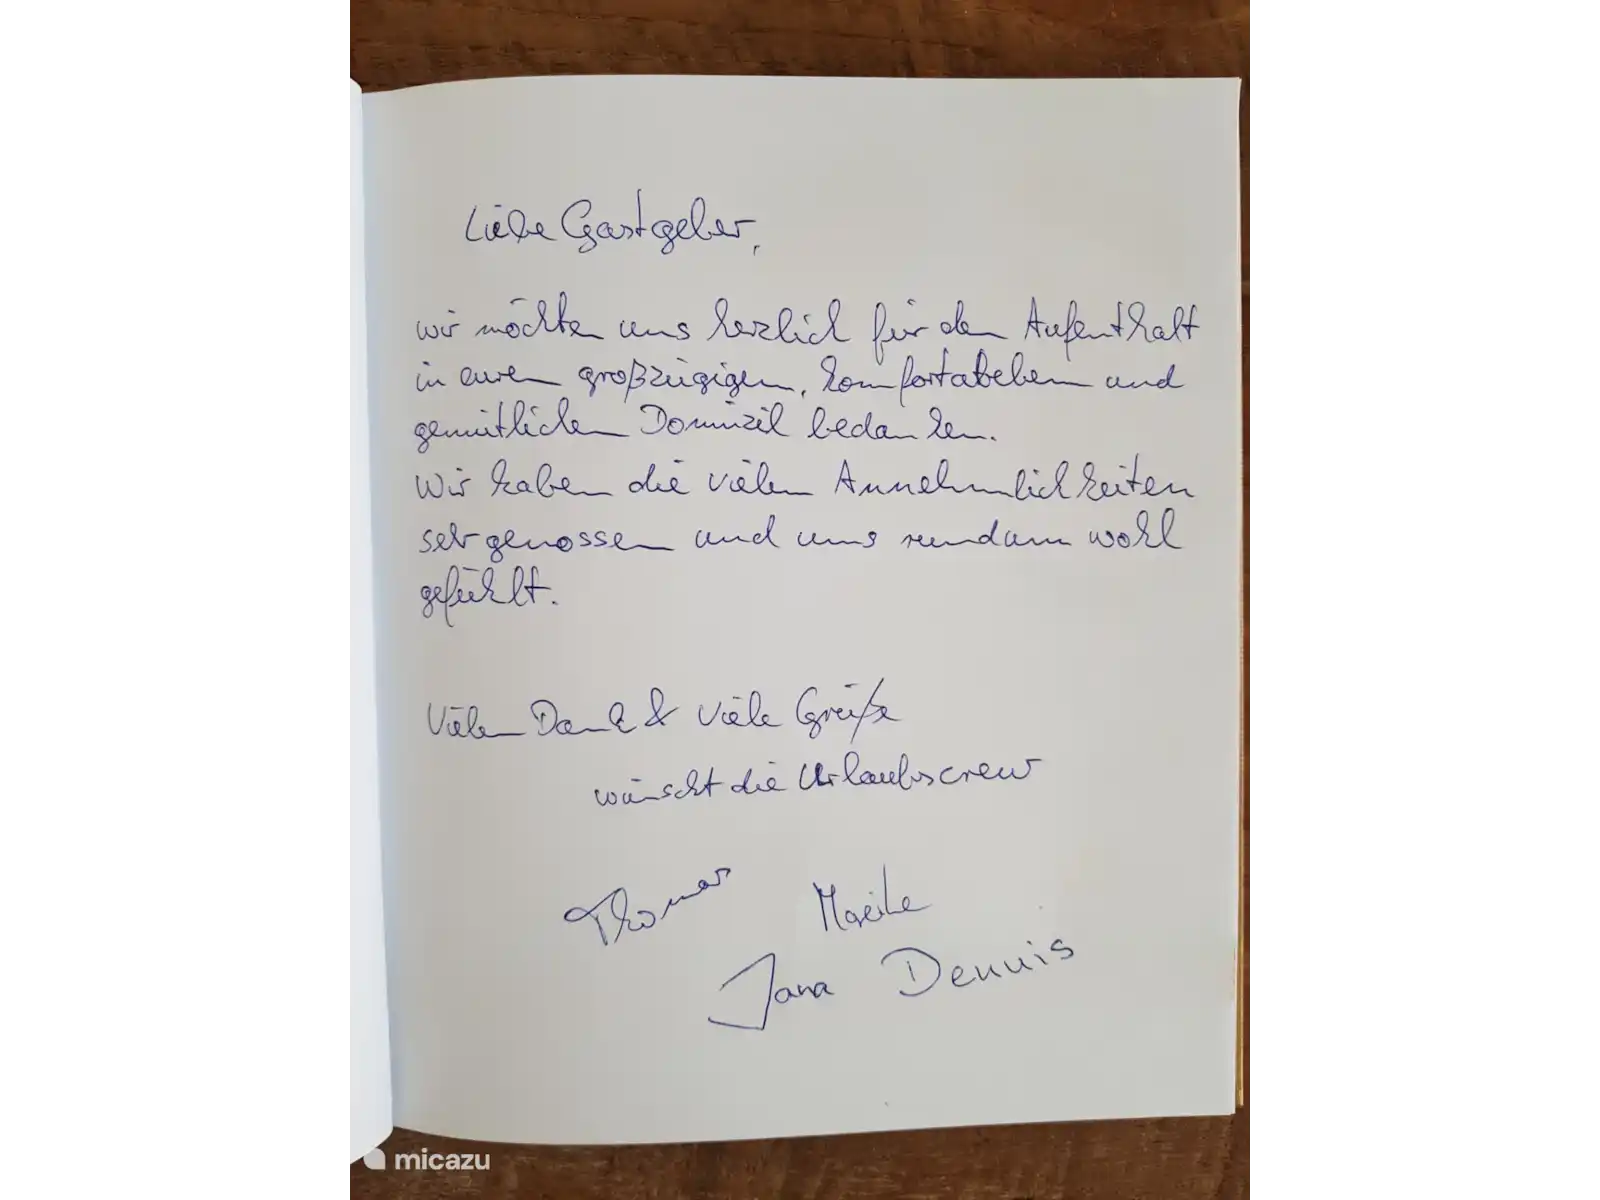 Liebe Gastgeber,
wir möchten uns herzlich für den Aufenthalt
in euren großzügigen, komfortabelen und
gemütlichen Domizil bedanken.
Wir haben die vielen Annehmlichkeiten
sehr genossen und uns rundum wohl
gefühlt.
Vielen Dank & Viele Grüße
wünscht die Urlaubscrew
Thomas Mareike
Jana Dennis
micazu